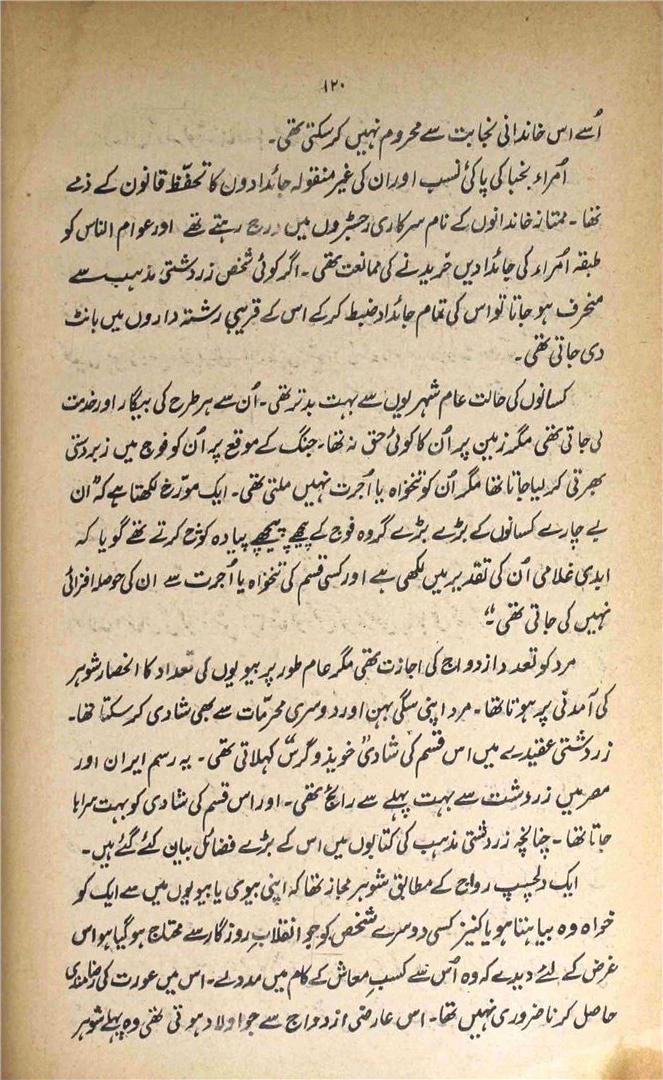 ۱۲۰
اُسے اس خاندانی نجابت سے محروم نہیں کر سکتی تھی۔
اُمراء نجبا کی پاکیِ نسب اور ان کی غیر منقولہ جائدادوں کا تحفّظ قانون کے ذمے
تھا۔ ممتاز خاندانوں کے نام سرکاری رجسٹروں میں درج رہتے تھے اور عوام الناس کو
طبقہ اُمراء کی جائدادیں خریدنے کی ممانعت تھی۔ اگر کوئی شخص زردشتی مذہب سے
منحرف ہو جاتا تو اس کی تمام جائداد ضبط کر کے اس کے قریبی رشتہ داروں میں بانٹ
دی جاتی تھی۔
کسانوں کی حالت عام شہریوں سے بہت بدتر تھی۔ اُن سے ہر طرح کی بیگار اور خدمت
لی جاتی تھی مگر زمین پر اُن کا کوئی حق نہ تھا۔ جنگ کے موقع پر اُن کو فوج میں زبردستی
بھرتی کر لیا جاتا تھا مگر اُن کو تنخواہ یا اُجرت نہیں ملتی تھی۔ ایک مورّخ لکھتا ہے کہ "ان
بے چارے کسانوں کے بڑے بڑے گروہ فوج کے پیچھے پیچھے پیادہ کوچ کرتے تھے گویا کہ
ابدی غلامی اُن کی تقدیر میں لکھی ہے اور کسی قسم کی تنخواہ یا اُجرت سے ان کی حوصلہ افزائی
نہیں کی جاتی تھی۔"
مرد کو تعدد ازدواج کی اجازت تھی مگر عام طور پر بیویوں کی تعداد کا انحصار شوہر
کی آمدنی پر ہوتا تھا۔ مرد اپنی سگی بہن اور دوسری محرمات سے بھی شادی کر سکتا تھا۔
زردشتی عقیدے میں اس قسم کی شادی "خویذوگرس" کہلاتی تھی۔ یہ رسم ایران اور
مصر میں زردشت سے بہت پہلے سے رائج تھی۔ اور اس قسم کی شادی کو بہت سراہا
جاتا تھا۔ چنانچہ زردشتی مذہب کی کتابوں میں اس کے بڑے فضائل بیان کئے گئے ہیں۔
ایک دلچسپ رواج کے مطابق شوہر مجاز تھا کہ اپنی بیوی یا بیویوں میں سے ایک کو
خواہ وہ بیاہتا ہو یا کنیز کسی دوسرے شخص کو جو انقلابِ روزگار سے محتاج ہو گیا ہو اس
غرض کے لئے دیدے کہ وہ اُس سے کسبِ معاش کے کام میں مدد لے۔ اس میں عورت کی رضامندی
حاصل کرنا ضروری نہیں تھا۔ اس عارضی ازدواج سے جو اولاد ہوتی تھی وہ پہلے شوہر